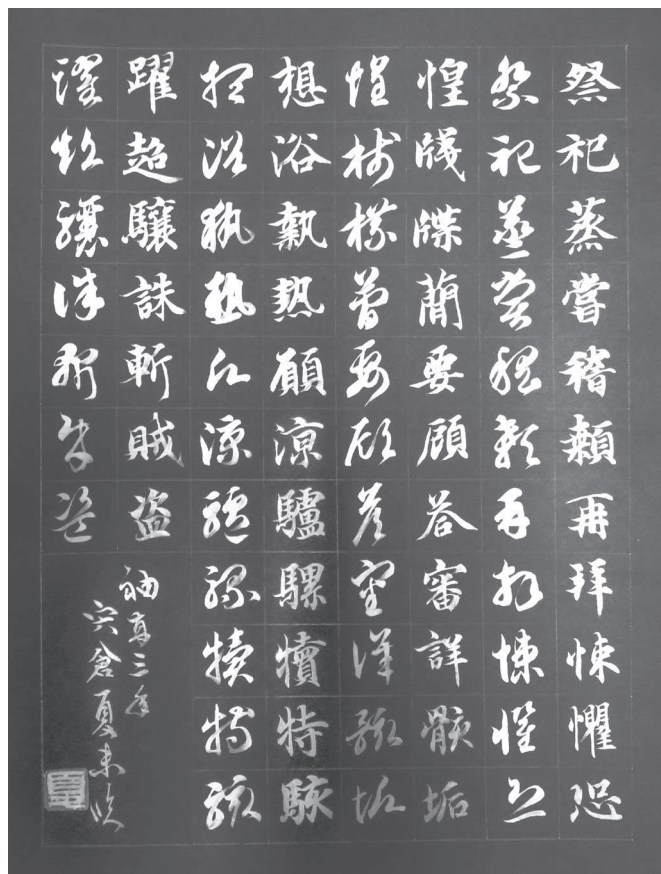 祭祀蒸嘗稽顙再拜悚懼恐
祭祀蒸嘗稽顙再拜悚懼恐
惶牋牒蕳要顧荅審詳骸垢
惶牋牒蕳要顧荅審詳骸垢
想浴執熱願涼驢騾犢特駭
想浴執熱願涼驢騾犢特駭
躍超驤誅斬賊盗
躍超驤誅斬賊盗
袖高三年
宍倉夏未臨